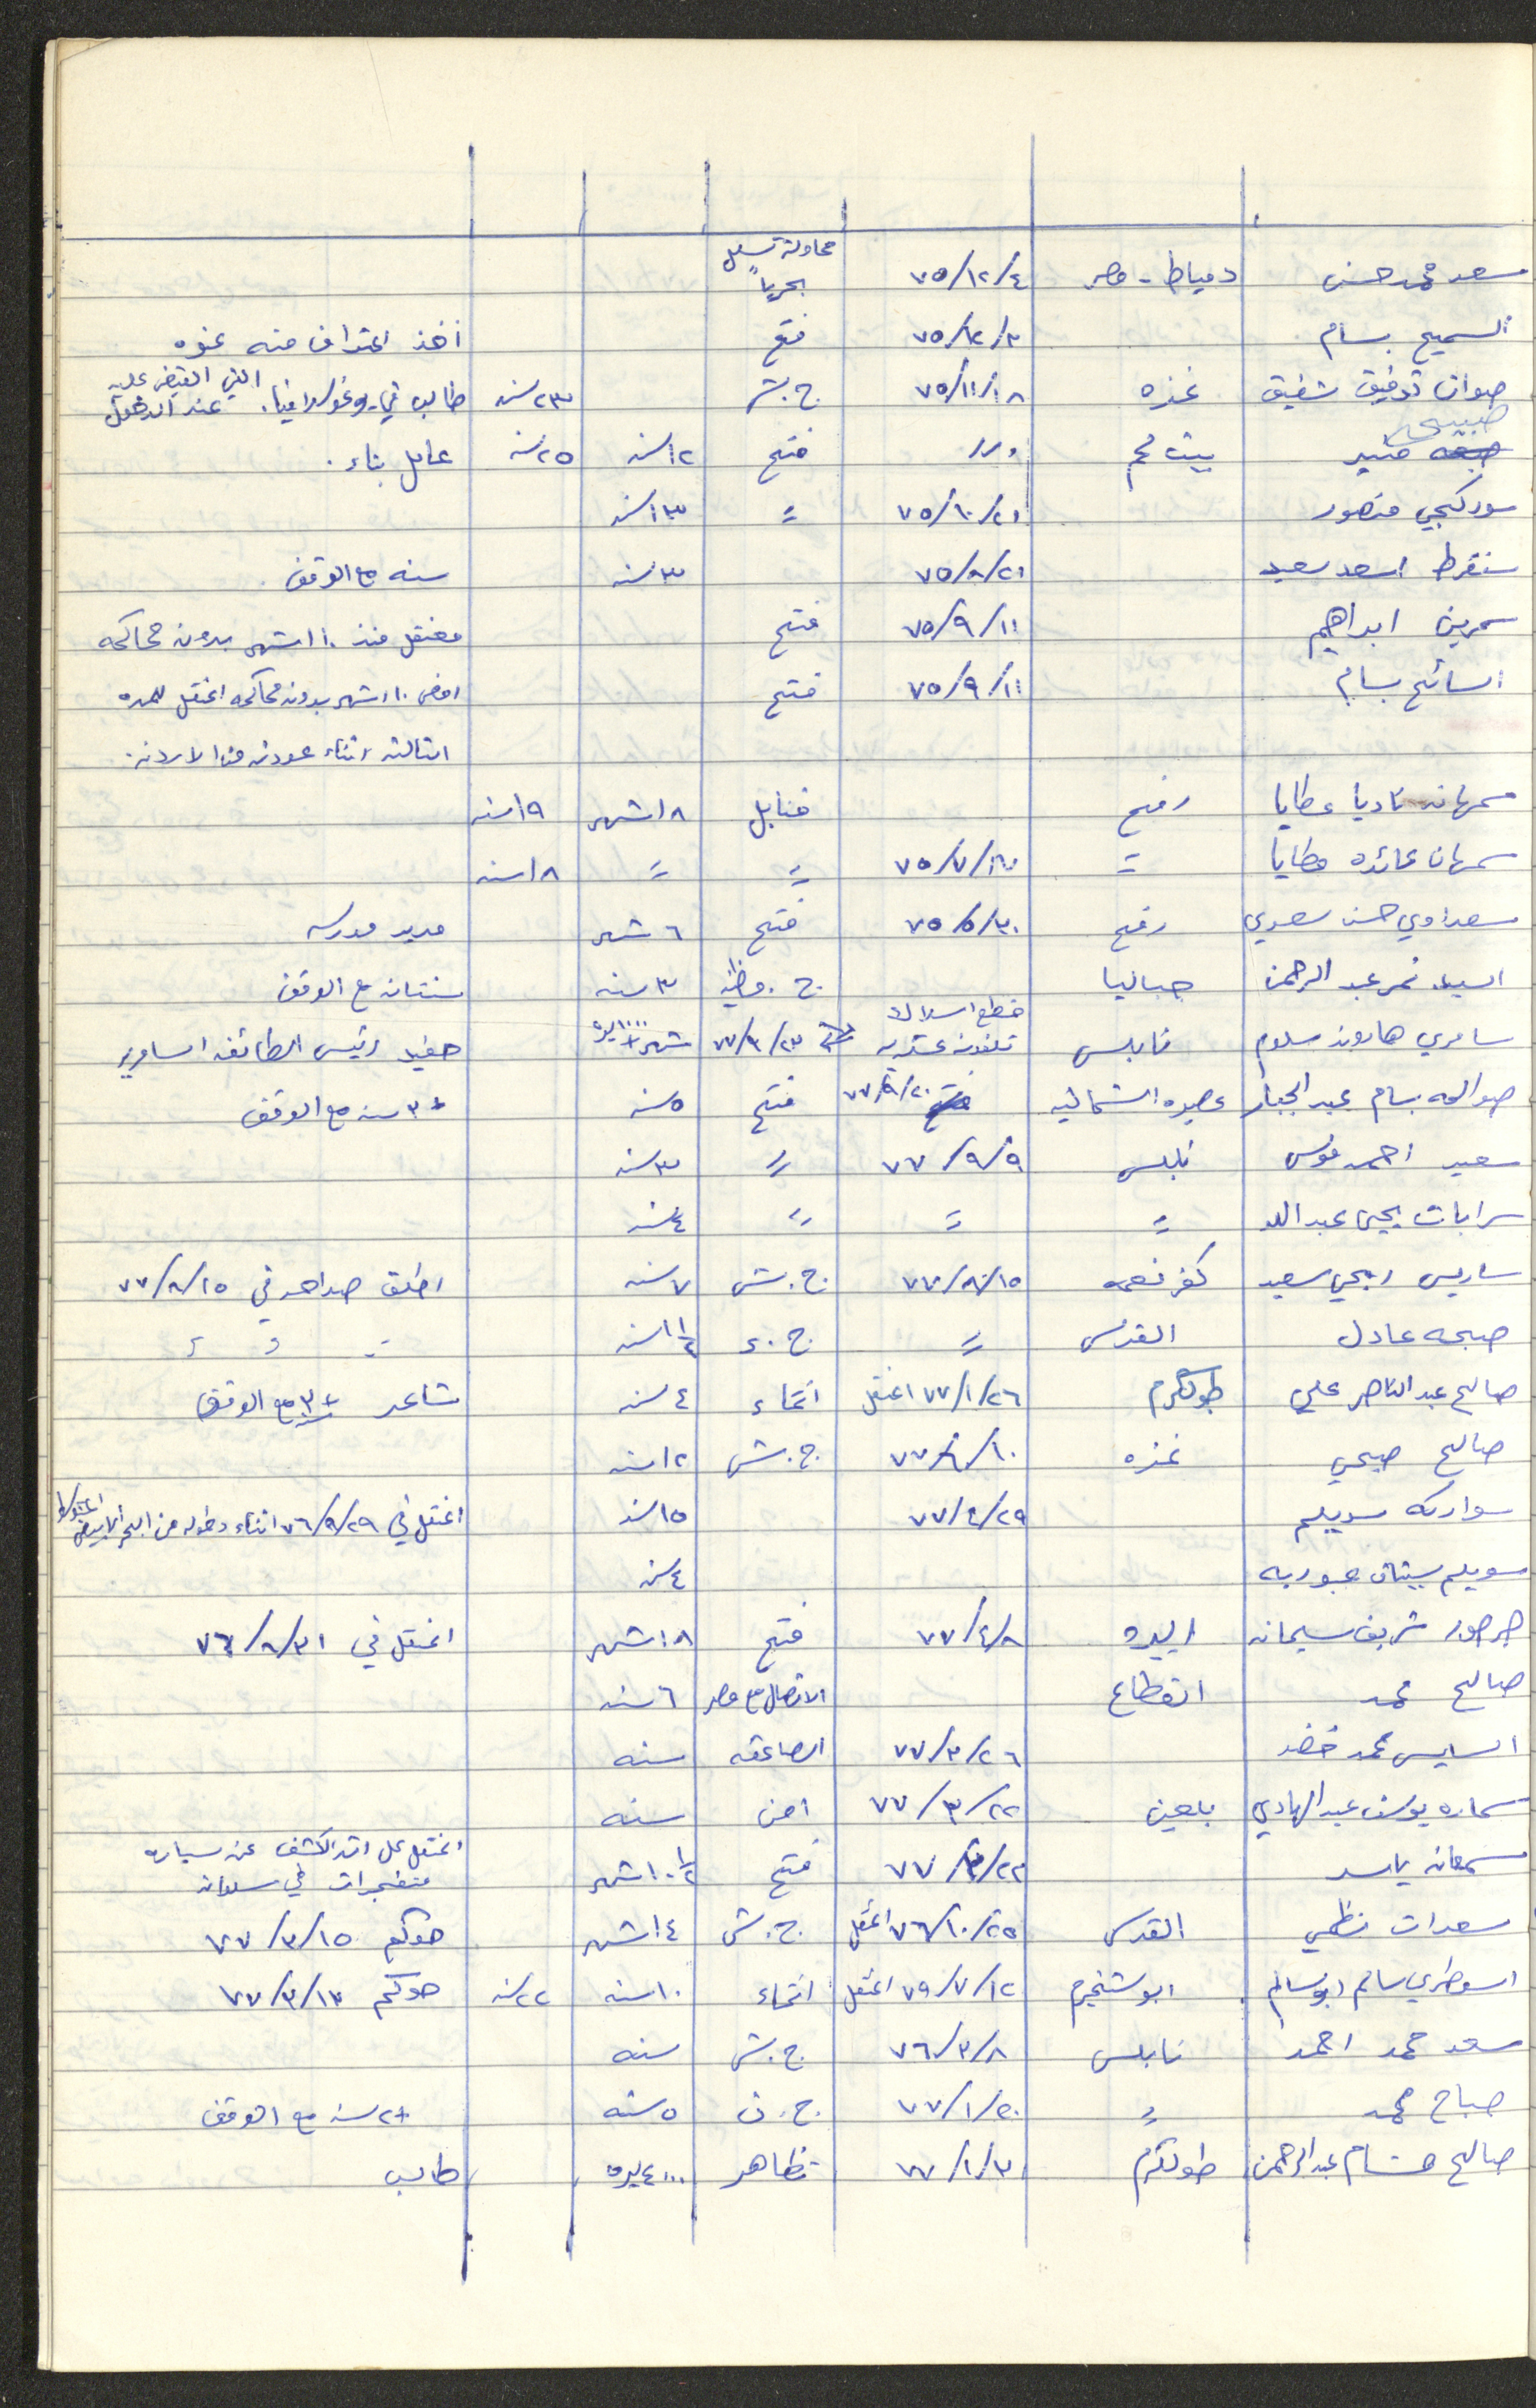 سعد محمد حسن دمياط - مصر ٧٥/١٢/٤ محاولة تسلل بحرياً
السميح بسام ٧٥/١٢/٣ فتح أخذ اعتراف منه عنوه
صوان توفيق شفيق غزه ٧٥/١١/١٨ ج.ش ٢٣ سنه طالب في يوغوسلافيا. القي القبض عليه عند الدخول
صبيح منير بيت لحم فتح ١٢ سنه ٢٥ سنه عامل بناء.
منصور ٧٥/١٠/٢١ = ١٣ سنه
سنقرط اسعد سعيد ٧٥/٨/٢١ ٣ سنه سنه مع الوقف.
سمرين ابراهيم ٧٥/٩/١١ فتح معتقل منذ ١٠ اشهر بدون محاكمه
السائح بسام ٧٥/٩/١١ فتح امضى ١٠ اشهر بدون محاكمه اعتقل للمره
الثالثه اثناء عودته من الاردن.
سمهان ناديا عطايا رفح قنابل ١٨ شهر ١٩ سنه
سمهان عائده عطايا = ٧٥/٧/١٧ = = ١٨ سنه
سعداوي حسن سعدي رفح ٧٥/٥/٣٠ فتح ٦ شهر مدير مدرسه
السيد نمر عبد الرحمن جباليا ج. وطنيه ٣ سنه سنتان مع الوقف
سامري هارون سلوم نابلس قطع اسلاك تلفون عسكريه ٧٧/٩/٢٣ شهر + ١٠٠٠٠ ليره حفيد رئيس الطائفه السامريه
صوالحه بسام عبد الجبار عصيره الشماليه ٧٧/٩/٢٠ فتح ٥ سنه +٣ سنه مع الوقف
سعيد احمد موسى نابلس ٧٧/٩/٩ = ٣ سنه
سرابات يحيى عبدالله = = = ٤ سنه
ساريس ربحي سعيد كفر نعمه ٧٧/٨/١٥ ج.ش ٧ سنه اطلق صراحه في ٧٧/٨/١٥
صبحه عادل القدس = ج.ع ١ ١/٢ سنه = = =
صالح عبد الناصر علي طولكرم ٧٧/١/٢٦ اعتقل انتماء ٤ سنه شاعر +٣ مع الوقف
صالح صبحي غزه ٧٧/٦/١٠ ج.ش ١٢ سنه
سواركه سويلم ٧٧/٤/٢٩ ١٥ سنه اعتقل في ٧٦/٩/٢٩ اثناء دخوله من البحر الابيض
سويلم ٤ سنه
صرصور شريف سليمان البيره ٧٧/٤/٨ فتح ١٨ شهر اعتقل في ٧٦/٨/٣١
صالح محمد القطاع الاتصال مع مصر ٦ سنه
السايس محمد خضر ٧٧/٣/٢٦ الصاعقه سنه
سماره يوسف عبد الهادي بلعين ٧٧/٣/٢٢ امن سنه
سمعان ياسر ٧٧/٣/٢٢ فتح ١٠ ١/٢ شهر اعتقل على اثر الكشف عن سياره متفجرات في سلوان
سعدات نظمي القدس ٧٦/١٠/٢٥ اعتقل ج.ش ١٤ شهر حوكم ٧٧/٣/١٥
السوطري سالم ابو سالم ابو شنخيدم ٧٩/٧/١٢ اعتقل انتماء ١٠ سنه ٢٢ سنه حوكم ٧٧/٣/١٣
سعد محمد احمد نابلس ٧٦/٣/٨ ج.ش سنه
صباح محمد = ٧٧/١/٢٠ ج.ن ٥ سنه +٢ سنه مع الوقف
صالح هشام عبد الرحمن طولكرم ٧٧/١/٣ تظاهر ٤٠٠٠ ليره طالب